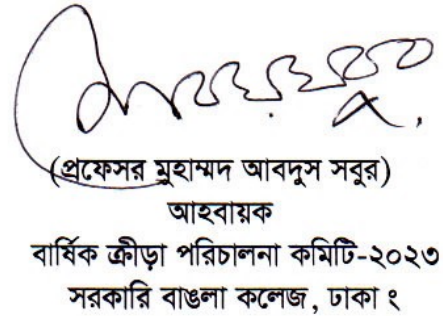 (প্রফেসর মুহাম্মদ আবদুস সবুর)
আহবায়ক
বার্ষিক ক্রীড়া পরিচালনা কমিটি-২০২৩
সরকারি বাঙলা কলেজ, ঢাকা ২